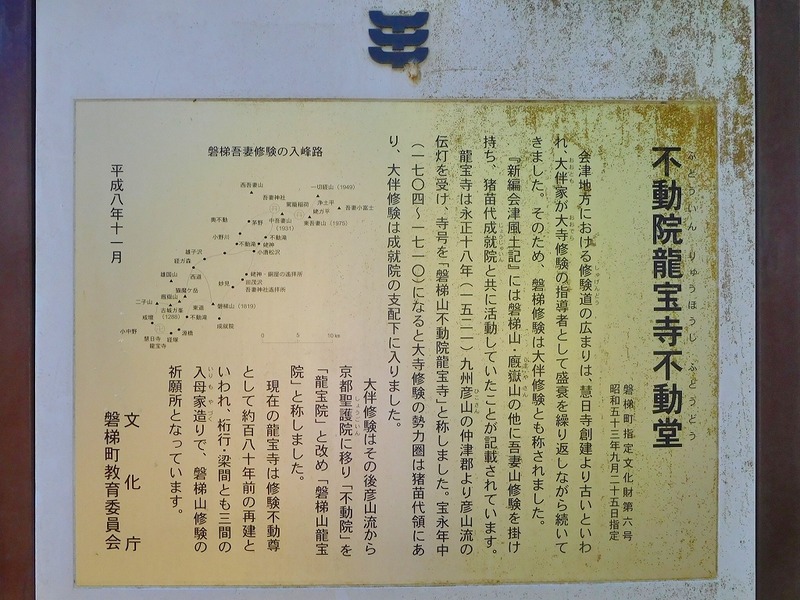 不動院龍宝寺不動堂
ふどういん りゅうほうじ ふどうどう
磐梯町指定文化財第六号
昭和五十三年九月二十五日指定
会津地方における修験道の広まりは、慧日寺創建より古いといわ
しゅげんどう
れ、大伴家が大寺修験の指導者として盛衰を繰り返しながら続いて
おおとも
おおてら
きました。そのため、磐梯修験は大伴修験とも称されました。
『新編会津風土記』には磐梯山・厩嶽山の他に吾妻山修験を掛け
持ち、猪苗代成就院と共に活動していたことが記載されています。
じょうじゅいん
龍宝寺は永正十八年（一五二一）九州彦山の仲津郡より彦山流の
ひこさん
伝灯を受け、寺号を「磐梯山不動院龍宝寺」と称しました。宝永年中
（一七〇四～一七一〇）になると大寺修験の勢力圏は猪苗代領にあ
り、大伴修験は成就院の支配下に入りました。
大伴修験はその後彦山流から
京都聖護院に移り「不動院」を
しょうごいん
「龍宝院」と改め「磐梯山龍宝
院」と称しました。
現在の龍宝寺は修験不動尊
として約百八十年前の再建と
いわれ、桁行・梁間とも三間の
入母家造りで、磐梯山修験の
いりもやづく
祈願所となっています。
磐梯吾妻修験の入峰路
西吾妻山
一切経山（1949）
吾妻神社
浄土平
吾妻小富士
鳥帽稲荷
姥ガ平
奥不動
茅野
中吾妻山
（1931）
東吾妻山（1975）
小野川
不動滝
不動滝
姥神
雄子沢
小滝松沢
経ガ森
雄国山
西道
姥神・銅屋の遙拝所
猫魔ケ岳
妙見
田茂沢
吾妻神社遙拝所
厩嶽山
二子山
古城ガ峯
（1288）
東道
磐梯山（1819）
戒壇
不動滝
成就院
小中野
源橋
慧日寺
経塚
龍宝寺
0
5
10㎞
平成八年十一月
文化庁
磐梯町教育委員会